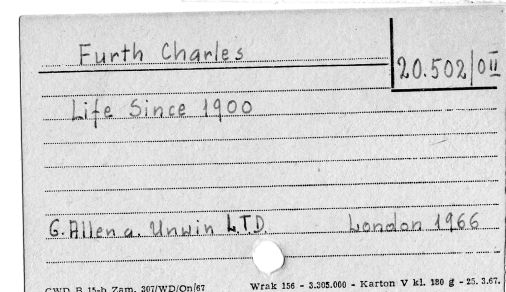 Furth Charles
20.502/0II
Life Since 1900
G. Allen a. Unwin L.T.D. London 1966
CWD B 15-b Zam. 307/WD/On/67 Wrak 156 - 3.305.000 - Karton V kl. 180 g - 25.3.67.